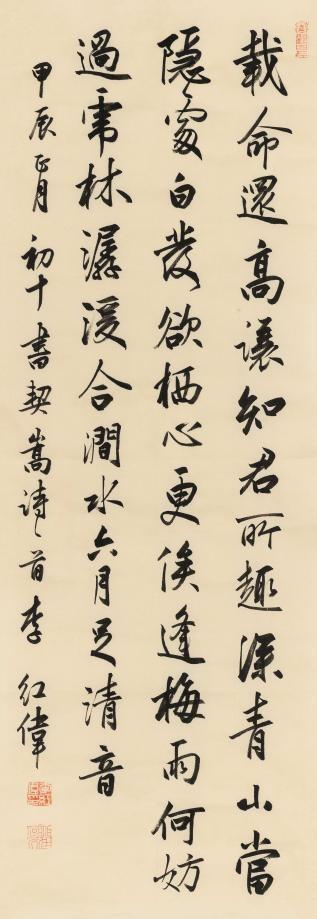 載命還高讓知君所趣深青山當
隱處白發欲栖心更俟逢梅雨何妨
過霅林潺湲合澗水六月足清音
甲辰正月初十書契嵩詩一首李紅偉